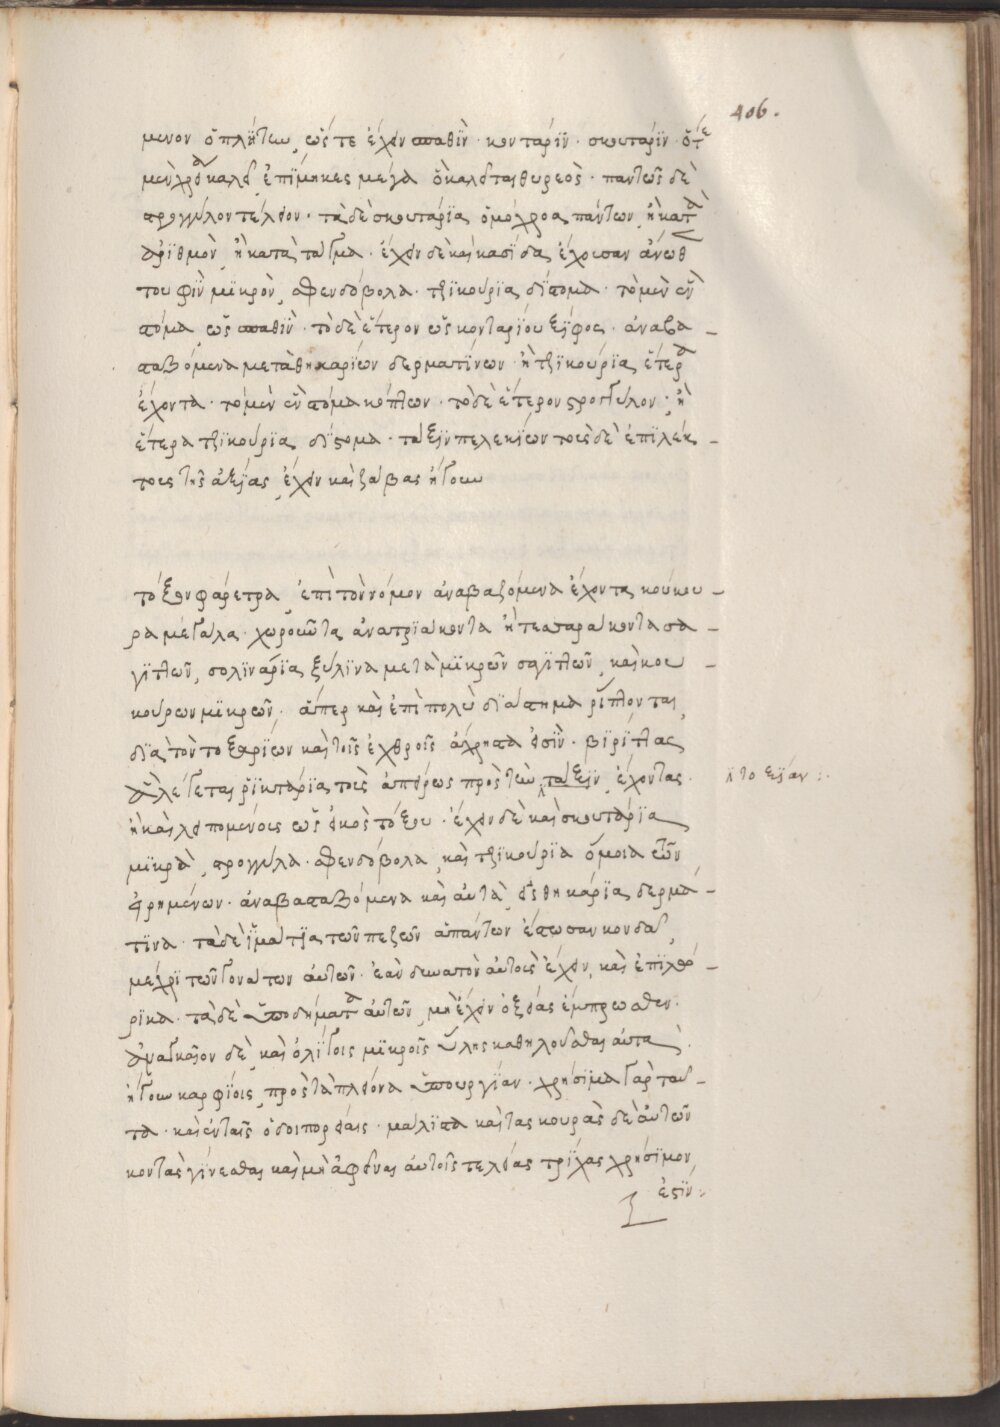 406.
μενον ὁπλήτην, ὥστε ἔχειν σπαθὶν · κονταρίν · σκουτάριν · ὅτε
μεγάλα καλεῖ ἐπίμηκες μέγα ὃ καλεῖται θυρεὸς · παντῶς δὲ
στρογγύλον τέλειον · τὰ δὲ σκουτάρϊα, ὁμόχροα πάντων, ἢ κατὰ
ἀριθμὸν, ἢ κατὰ τάγμα · ἔχειν δὲ καὶ κασίδα, ἔχουσαν ἄνωθ
τουφὶν μϊκρὸν, σφενδόβολα · τζϊκούρϊα, δίστομα · τὸ μὲν ἓν
στόμα, ὡς σπαθὶν · τὸ δὲ ἕτερον ὡς κονταρίου ξίφος · ἀναβα-
σταζόμενα μετὰ θηκαρίων δερματίνων · ἢ τζϊκούρϊα, ἕτερα
ἔχοντα · τὸ μὲν ἓν στόμα κόπτων · τὸ δὲ ἕτερον στρογγύλον · ἢ
ἕτερα τζϊκούρϊα, δίστομα · τάξιν πελεκίων τοὺς δὲ ἐπϊλέκ-
τους τῆς ἀξίας, ἔχειν καὶ ζάβας ἤγουν
τοξοφάρετρα, ἐπὶ τὸν νόμον ἀναβαζόμενα ἔχοντα, κούκου-
ρα μεγάλα · χωροῦντα, ἀνατριάκοντα ἢ τεσσαράκοντα σα-
γίττων, σολϊνάρϊα, ξύλϊνα μετὰ μϊκρῶν σαγίττων, καὶ κου-
κούρων μϊκρῶν, ἅπερ καὶ ἐπὶ πολὺ διάστημα ῥίπτονται,
δϊὰ τὸν τοξαρίων καὶ τοῖς ἐχθροῖς ἄχρηστα εἰσὶν · βϊρίττας
λέγεται ῥϊκτάρϊα, τοὺς ἀπείρως πρὸς τὴν τάξιν, ἔχοντας ·
τοξίαν :
ἢ καὶ λειπομένοις ὡς εἰκὸς τόξου · ἔχειν δὲ καὶ σκουτάρϊα
μϊκρὰ, στρογγύλα · σφενδόβολα, καὶ τζϊκούρϊα ὅμοια τῶν
εἰρημένων · ἀναβασταζόμενα καὶ αὐτὰ, εἰς θηκάρϊα, δερμά-
τϊνα · τὰ δὲ ἱμάτϊα, τῶν πεζῶν ἁπάντων ἔστωσαν κονδα,
μέχρι τῶν γονάτων αὐτῶν · ἐὰν δυνατὸν αὐτοὺς ἔχειν, καὶ ἐπϊλώ-
ρϊκα · τὰ δὲ ὑποδήματα αὐτῶν, μὴ ἔχειν ὀξείας ἔμπροσθεν ·
ἀναγκαῖον δὲ, καὶ ὀλίγοις μϊκροῖς ὕλης καθηλοῦσθαι αὐτά ·
ἤγουν καρφίοις, πρὸς τὰ πλείονα ὑπουργίαν · χρήσιμα γὰρ ταῦ-
τα · καὶ ἐν ταῖς ὁδοιπορείαις · μάλϊστα καὶ τὰς κουρὰς δὲ αὐτῶν
κοντὰς γίνεσθαι, καὶ μὴ ἀφεῖναι αὐτοῖς τελείας τρίχας χρήσιμον,
ἐστίν :